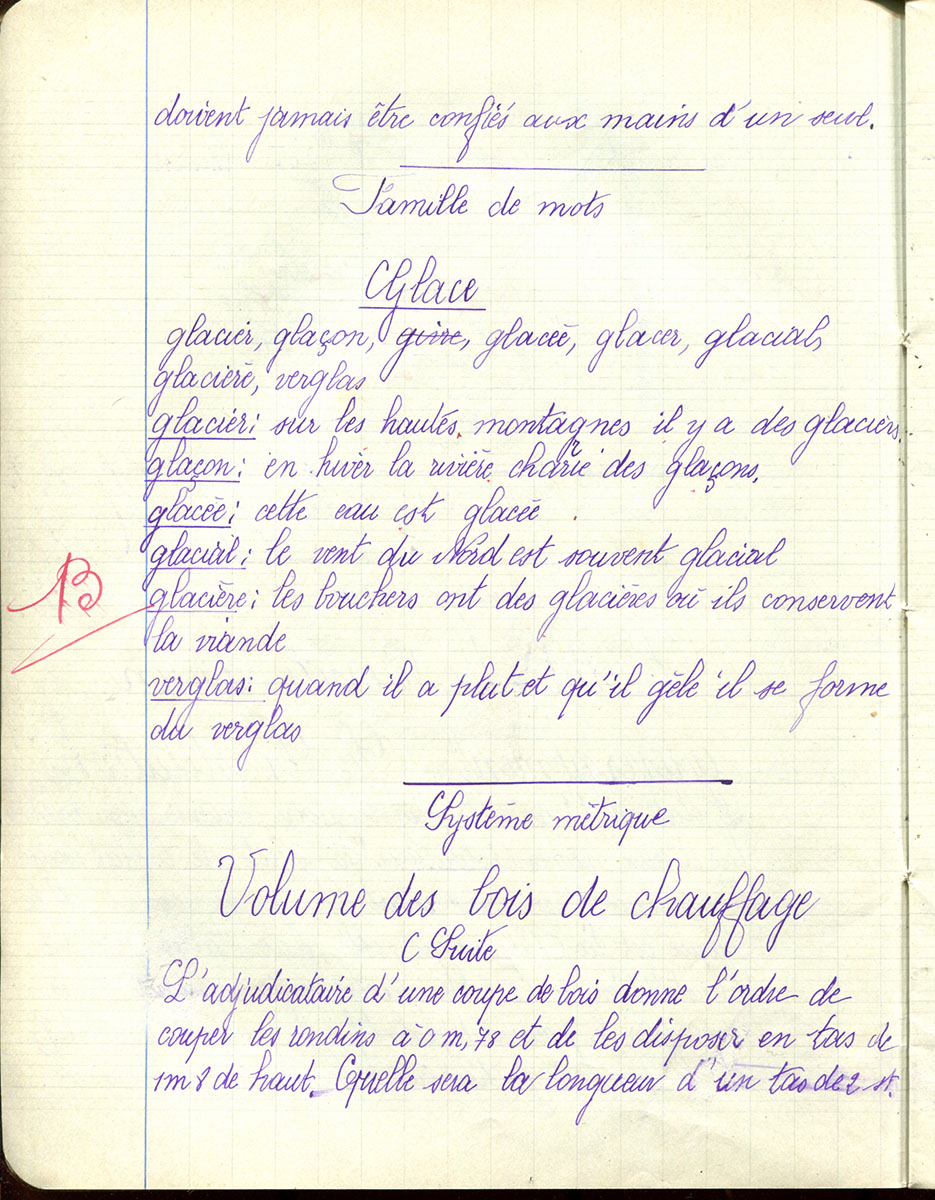 doivent jamais être confiés aux mains d'un seul.
Famille de mots
Glace
glacier, glaçon, givre, glacée, glacer, glacial,
glacière, verglas
glacier: sur les hautes montagnes il y a des glaciers.
glaçon: en hiver la rivière charrie des glaçons.
glacée: cette eau est glacée
glacial: le vent du Nord est souvent glacial
B
glacière: les bouchers ont des glacières où ils conservent
la viande
verglas: quand il a plut et qu'il gèle il se forme
du verglas
Système métrique
Volume des bois de chauffage
(Suite
L'adjudicataire d'une coupe de bois donne l'ordre de
couper les rondins à 0m,78 et de les disposer en tas de
1m 8 de haut. Quelle sera la longueur d'un tas de 2 st.